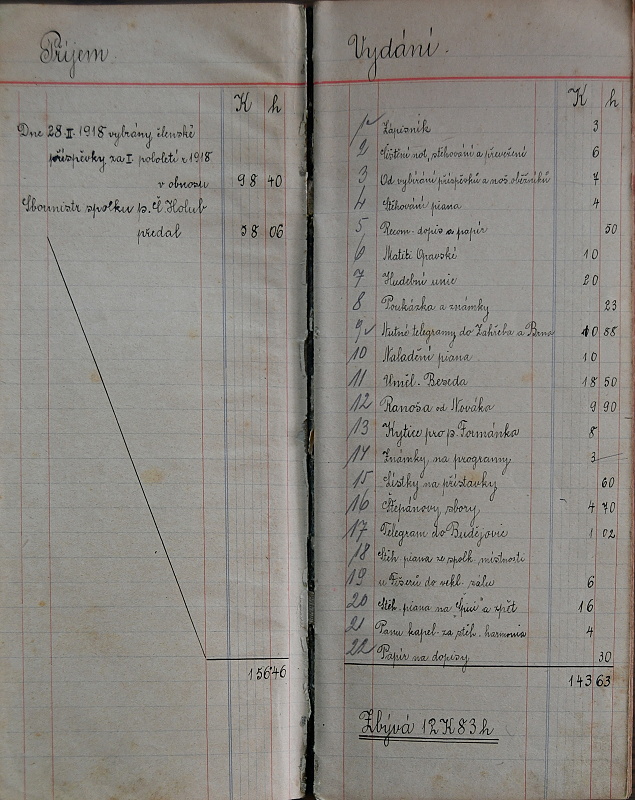 Příjem.
K h
Dne 28 II. 1918 vybrány členské
příspěvky za I. pololetí r. 1918
v obnosu 98 40
Sbormistr spolku p. Č. Holub
předal 58 06
156 46
Vydání.
K h
1 Zápisník 3
2 Tištění not, stěhování a převežení 6
3 Od vybírání příspěvků a noš. oběžníků 7
4 Stěhování piana 4
5 Recom. dopis a papír 50
6 Matiti Opavské 10
7 Hudební unie 20
8 Poukázka a známky 23
9 Nutné telegramy do Záhřeba a Brna 10 88
10 Naladění piana 10
11 Uměl. Beseda 18 50
12 Ranoša od Nováka 9 90
13 Kytice pro p. Formánka 8
14 Známky na programy 3
15 Lístky na přístavky 60
16 Štěpánovy sbory 4 70
17 Telegram do Budějovic 1 02
18 Stěh. piana ze spolk. místnosti
19 u Fišerů do vekl. sálu 6
20 Stěh. piana na a zpět 16
21 Panu kapel. za stěh. harmonia 4
22 Papír na dopisy 30
143 63
Zbývá 12 K 83 h